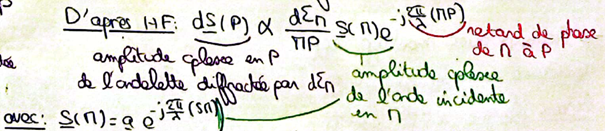 D'après HF: dS(P) ∝ dΣM/MP S(M) e^{-j 2π/λ (MP)}
retard de phase
de M à P
amplitude cplexe en P
de l'ondelette diffractée par dΣM
amplitude cplexe
de l'onde incidente
en M
avec: S(M) = a e^{-j 2π/λ (SM)}